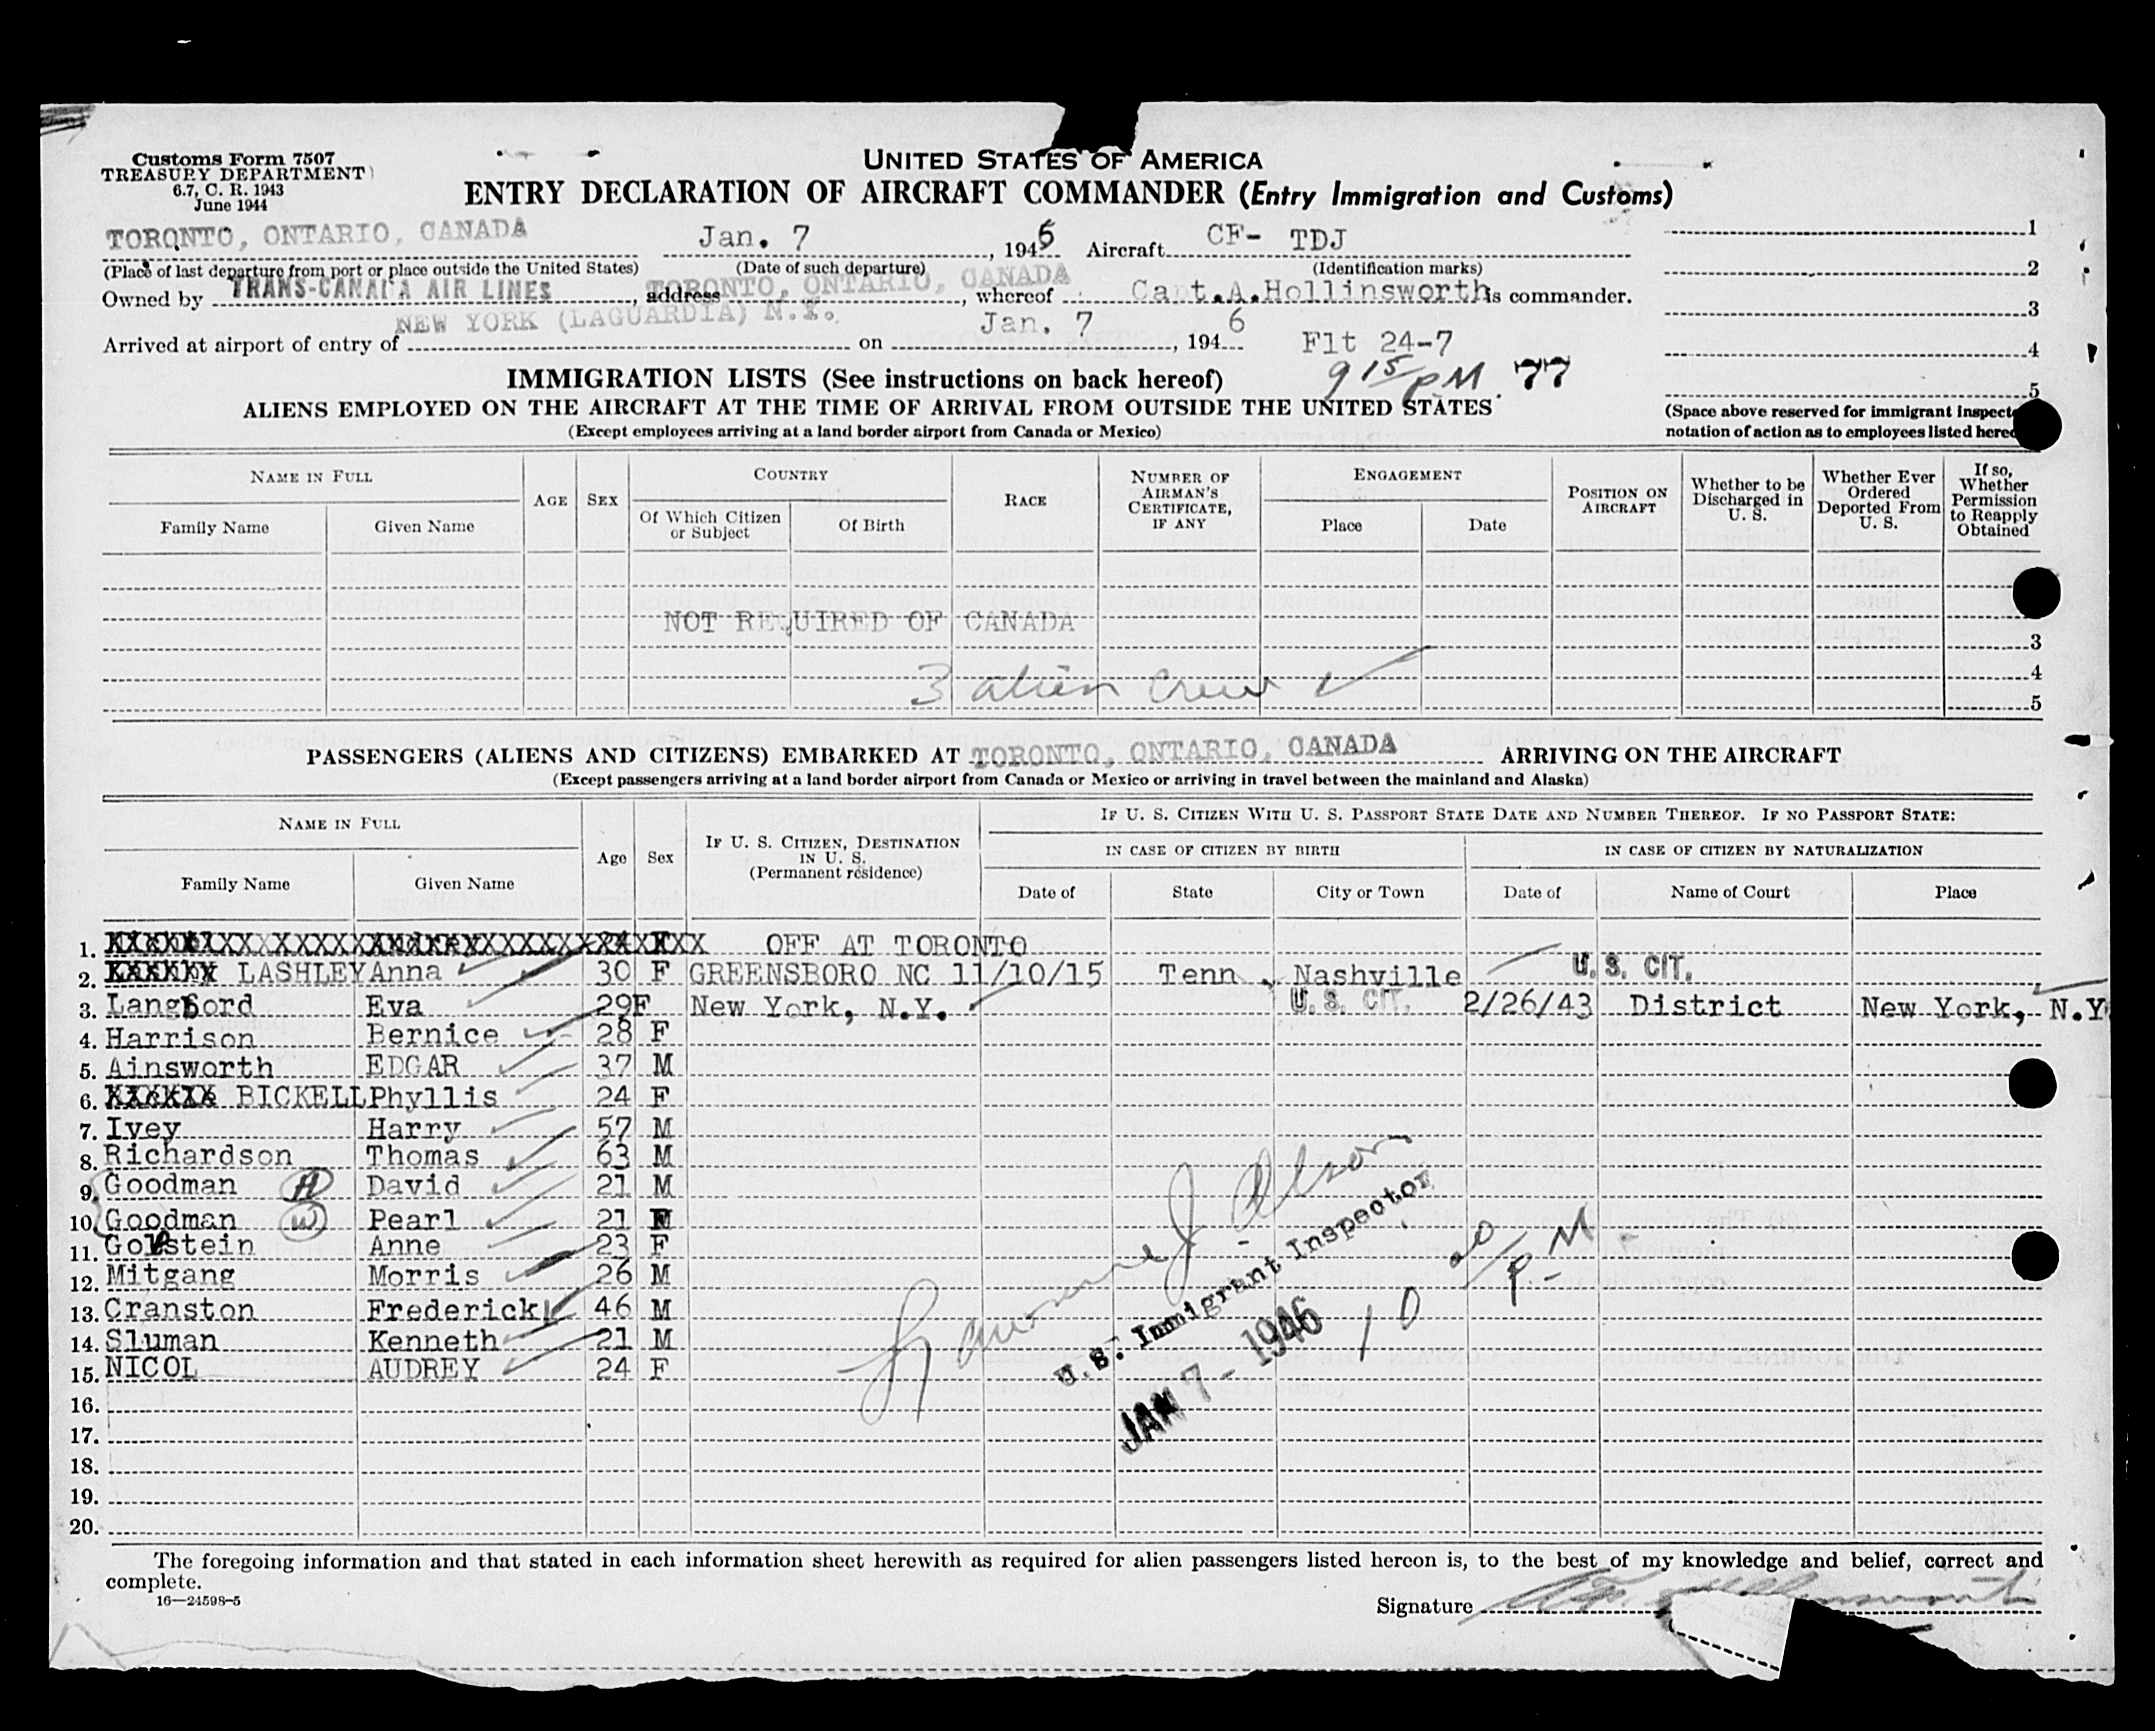 Customs Form 7507
TREASURY DEPARTMENT
6.7, C. R. 1943
June 1944
UNITED STATES OF AMERICA
ENTRY DECLARATION OF AIRCRAFT COMMANDER (Entry Immigration and Customs)
TORONTO, ONTARIO, CANADA Jan. 7, 1946 Aircraft CF- TDJ
(Place of last departure from port or place outside the United States) (Date of such departure) (Identification marks)
Owned by TRANS-CANADA AIR LINES, address TORONTO, ONTARIO, CANADA, whereof Capt.A.Hollinsworth is commander.
Arrived at airport of entry of NEW YORK (LAGUARDIA) N.Y. on Jan. 7, 1946 Flt 24-7
9 15/PM 77
1
2
3
4
5
(Space above reserved for immigrant inspect
notation of action as to employees listed here
IMMIGRATION LISTS (See instructions on back hereof)
ALIENS EMPLOYED ON THE AIRCRAFT AT THE TIME OF ARRIVAL FROM OUTSIDE THE UNITED STATES
(Except employees arriving at a land border airport from Canada or Mexico)
NAME IN FULL
Family Name Given Name
AGE SEX
COUNTRY
Of Which Citizen or Subject Of Birth
RACE
NUMBER OF AIRMAN'S CERTIFICATE, IF ANY
ENGAGEMENT
Place Date
POSITION ON AIRCRAFT
Whether to be Discharged in U. S.
Whether Ever Ordered Deported From U. S.
If so, Whether Permission to Reapply Obtained
NOT REQUIRED OF CANADA
3
3 alien crew
4
5
PASSENGERS (ALIENS AND CITIZENS) EMBARKED AT TORONTO, ONTARIO, CANADA ARRIVING ON THE AIRCRAFT
(Except passengers arriving at a land border airport from Canada or Mexico or arriving in travel between the mainland and Alaska)
NAME IN FULL
Family Name Given Name
Age Sex
IF U. S. CITIZEN, DESTINATION IN U. S.
(Permanent residence)
IF U. S. CITIZEN WITH U. S. PASSPORT STATE DATE AND NUMBER THEREOF. IF NO PASSPORT STATE:
IN CASE OF CITIZEN BY BIRTH IN CASE OF CITIZEN BY NATURALIZATION
Date of State City or Town Date of Name of Court Place
1. 24 F OFF AT TORONTO
2. LASHLEY Anna 30 F GREENSBORO NC 11/10/15 Tenn, Nashville U. S. CIT.
3. Langford Eva 29 F New York, N.Y. U. S. CIT. 2/26/43 District New York, N.Y.
4. Harrison Bernice 28 F
5. Ainsworth EDGAR 37 M
6. BICKELL Phyllis 24 F
7. Ivey Harry 57 M
8. Richardson Thomas 63 M
9. Goodman H David 21 M
10. Goodman W Pearl 21 F
11. Golstein Anne 23 F
12. Mitgang Morris 26 M
13. Cranston Frederick 46 M
14. Sluman Kenneth 21 M
15. NICOL AUDREY 24 F
16.
17.
18.
19.
20.
Lawrence J Olson
U. S. Immigrant Inspector
JAN 7 - 1946
10 20/P-M
The foregoing information and that stated in each information sheet herewith as required for alien passengers listed hereon is, to the best of my knowledge and belief, correct and
complete.
16—24598-5
Signature